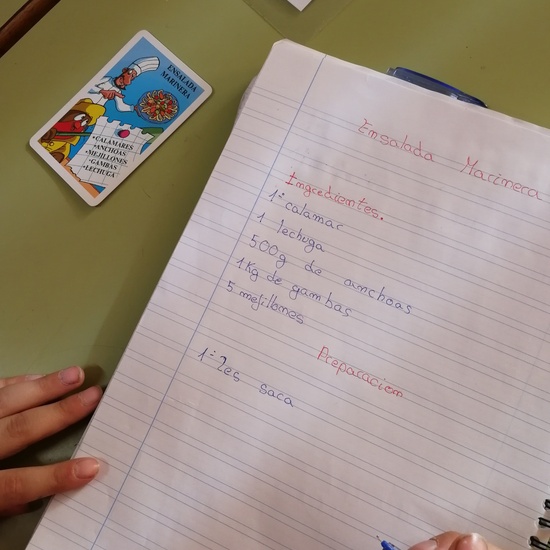 ENSALADA
MARINERA
•CALAMARES
•ANCHOAS
•MEJILLONES
•GAMBAS
•LECHUGA
Ensalada Marinera
Ingredientes.
1º calamar
1 lechuga
500g de anchoas
1Kg de gambas
5 mejillones
Preparación
1º 2es saca